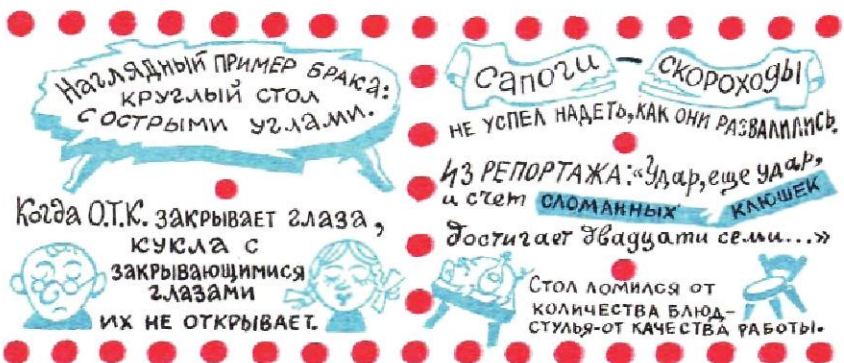 Наглядный пример брака:
круглый стол
с острыми углами.
Когда О.Т.К. закрывает глаза,
кукла с
закрывающимися
глазами
их не открывает.
Сапоги - скороходы
не успел надеть, как они развалились.
Из репортажа: «Удар, еще удар,
и счет сломанных клюшек
достигает двадцати семи...»
Стол ломился от
количества блюд-
стулья-от качества работы.